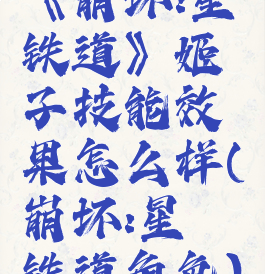 《崩坏:星
铁道》姬
子技能效
果怎么样(
崩坏:星
铁道角色)